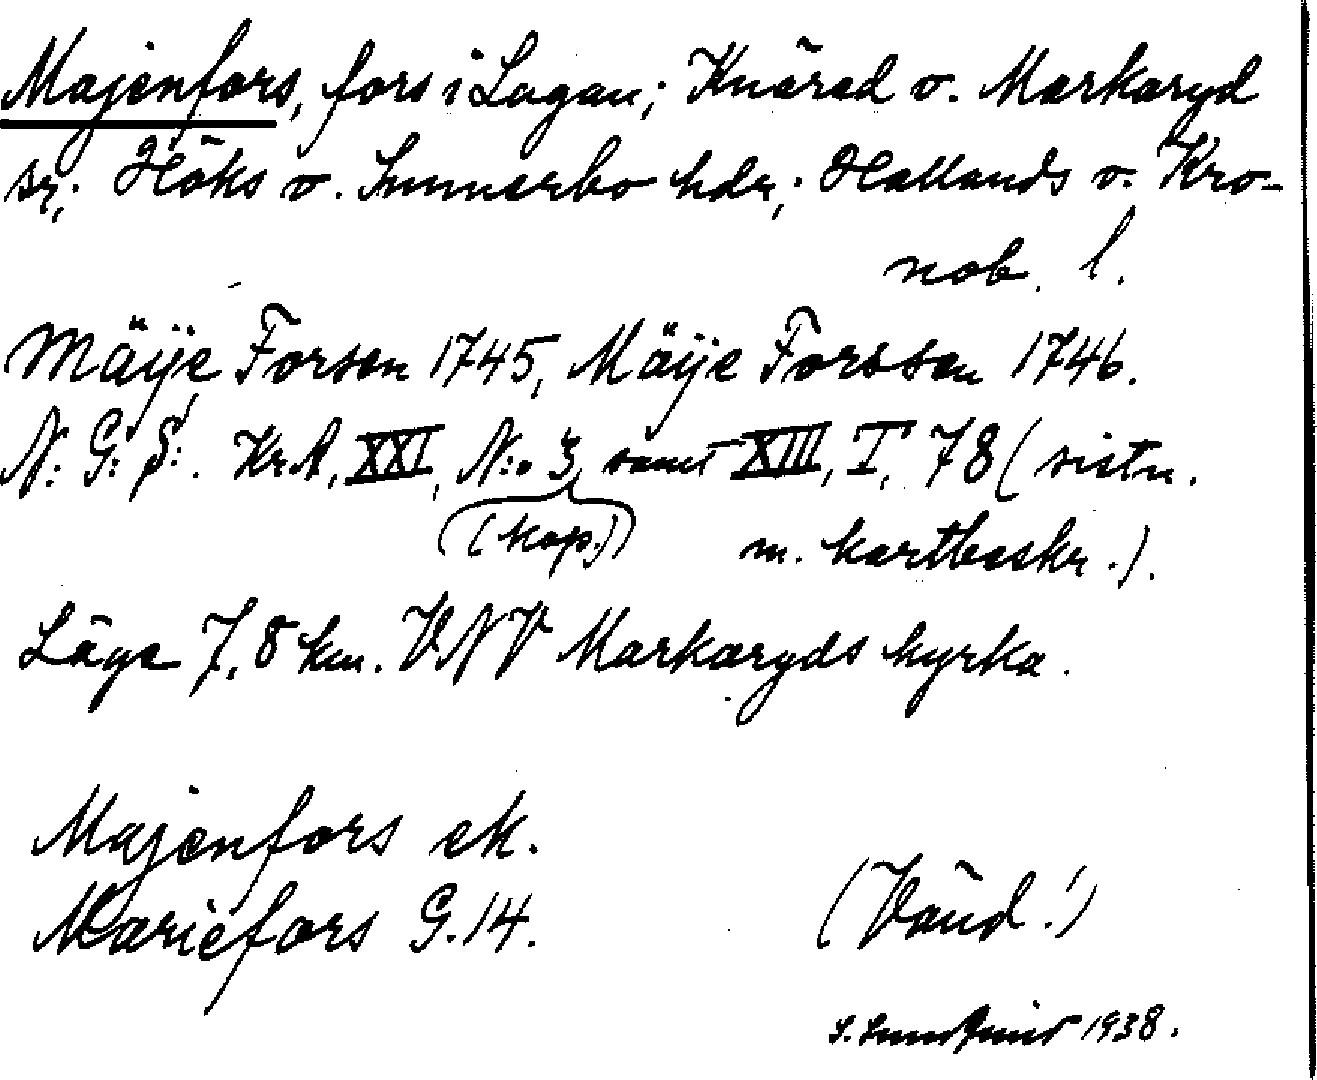 Majenfors, fors i Lagan; Knäred o. Markaryd
sr; Höks o. Sunnerbo hdr; Hallands o. Kro-
nob. l.
Mäÿe Forsen 1745, Mäÿe Forssen 1746.
N: G: S: KrA, XXI, N:o 3 samt XIII, I, 78 (sistn.
(kop.) m. kartbeskr.).
Läge 7,8 km. VNV Markaryds kyrka.
Majenfors ek.
Mariefors G.14.
(Vänd!)
1938.